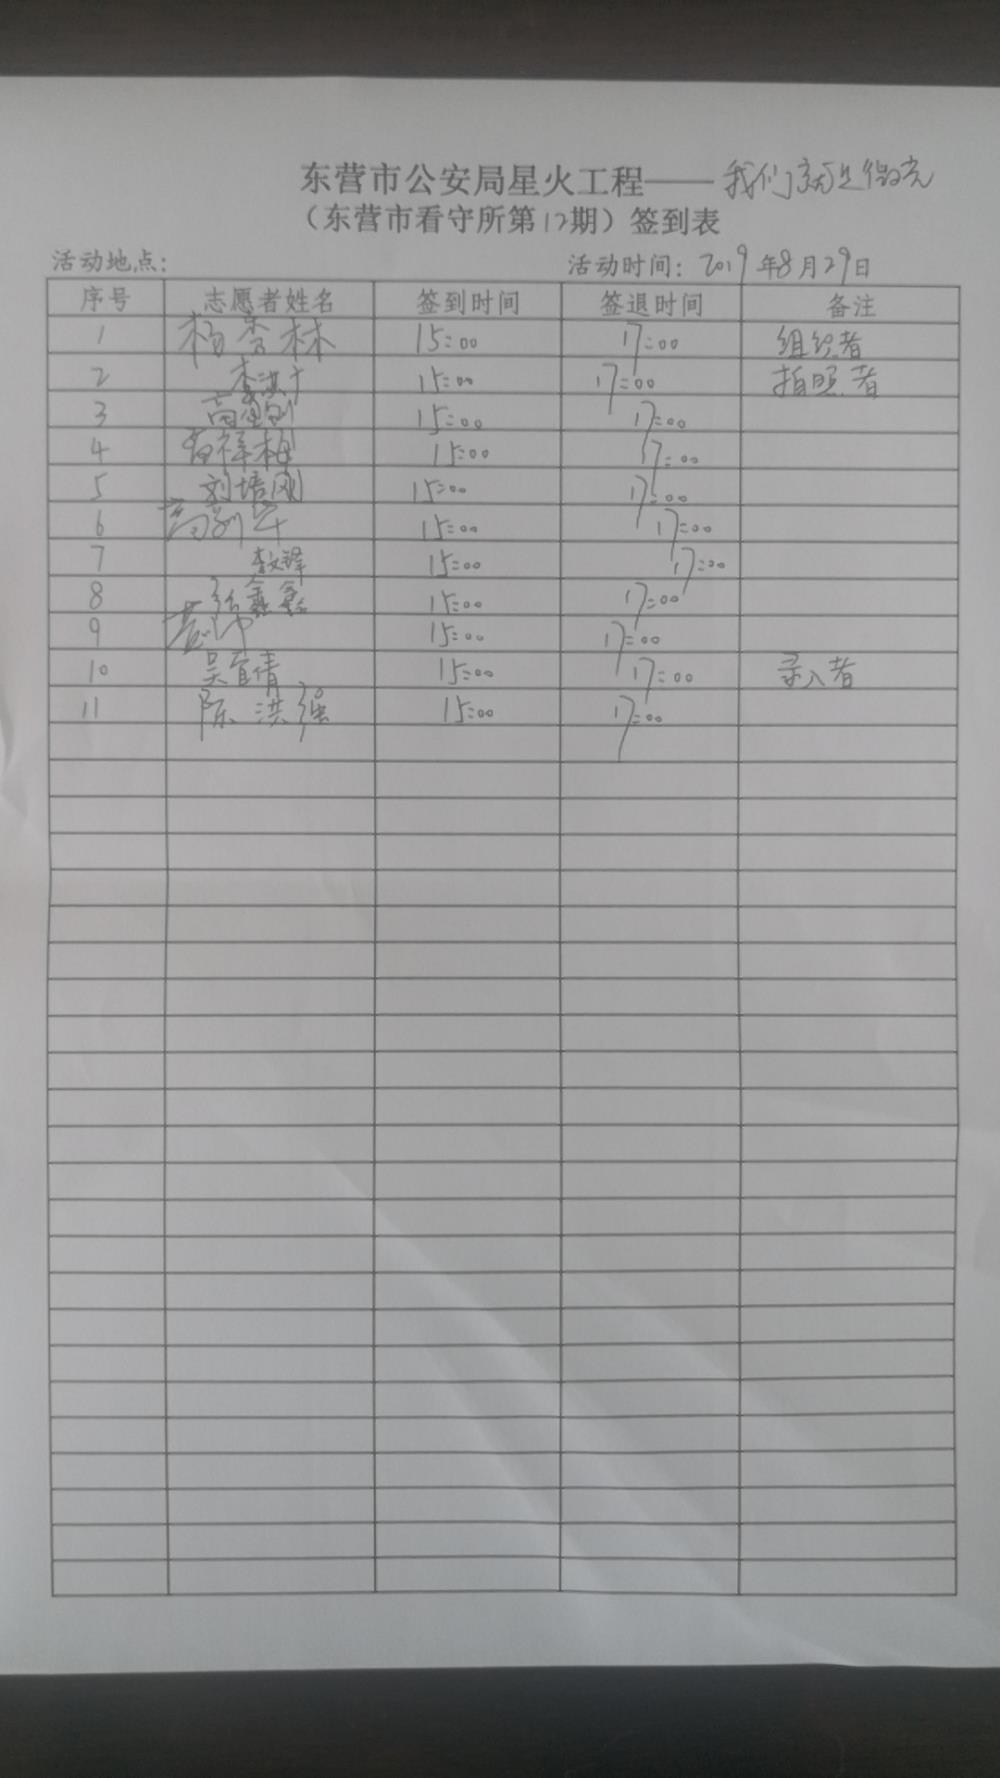 东营市公安局星火工程——我们就是微光
（东营市看守所第12期）签到表
活动地点： 活动时间：2019年8月29日
序号 志愿者姓名 签到时间 签退时间 备注
1 杨杏林 15:00 17:00 组织者
2 15:00 17:00 拍照者
3 15:00 17:00
4 祥梅 15:00 17:00
5 刘培刚 15:00 17:00
6 15:00 17:00
7 15:00 17:00
8 张鑫鑫 15:00 17:00
9 15:00 17:00
10 吴宜倩 15:00 17:00 录入者
11 陈洪强 15:00 17:00